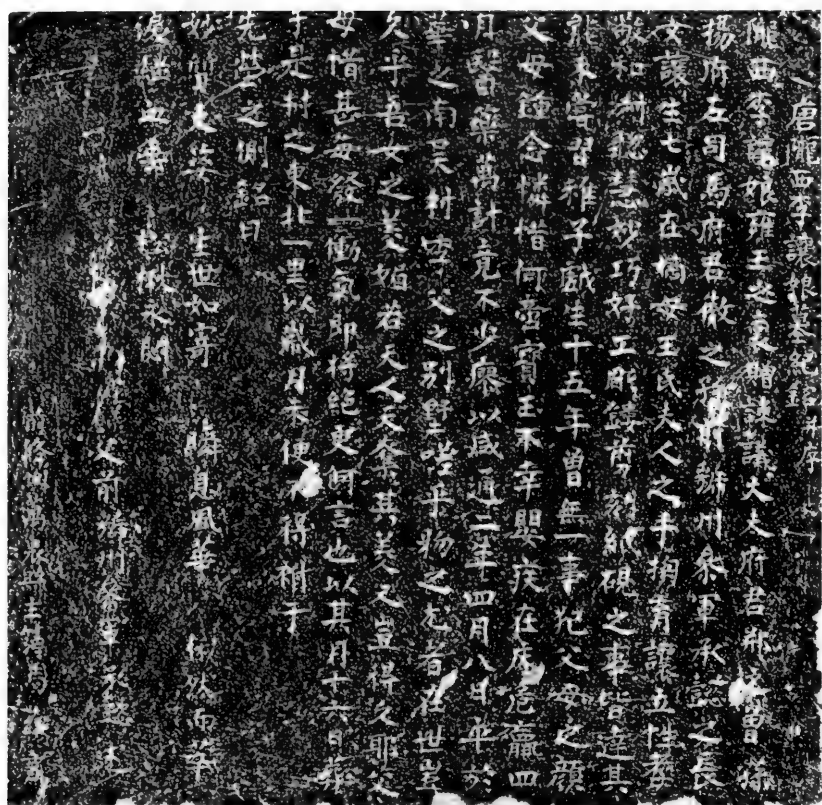 唐隴西李讓娘墓紀銘并序
隴西李讓娘雍王之裔贈諫議大夫府君那之曾孫
揚府左司馬府君徹之孫前辯州叅軍承懿之長
女讓生七歲在嫡母王氏夫人之手撫育讓立性孝
敬和淑聡慧妙巧好工彫鏤剪刻紙硯之事皆達其
能未嘗習稚子戲生十五年曾無一事犯父母之顔
父母鍾念憐惜何啻寳玉不幸嬰疾在床危羸四
月醫藥萬計竟不少瘳以咸通二年四月八日卒於
華之南吴村字父之别墅嗟乎物之尤者在世豈
久乎吾女之美媚若天人天奪其美又豈得久耶父
母惜甚每發一慟氣即將絶更何言也以其月十六日葬
于是村之東北一里以歲月不便不得祔于
先塋之側銘曰
妙質夭姿 生世如寄 瞬息風華 倐然而
松楸永閟
父前州叅軍承懿